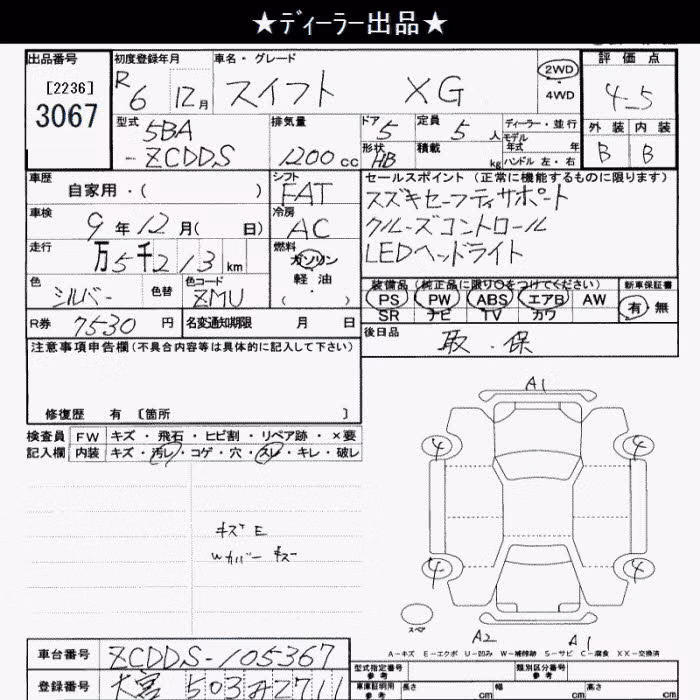 ★ディーラー出品★
出品番号
[2236]
3067
初度登録年月
R6 12月
車名・グレード
スイフト XG
2WD
・
4WD
評価点
4.5
外装 内装
B B
型式
5BA
-ZCDDS
排気量
1200cc
ドア
5
形状
HB
定員
5人
積載
kg
ディーラー・並行
モデル
年式 年
ハンドル 左・右
車歴
自家用・( )
シフト
FAT
セールスポイント(正常に機能するものに限ります)
スズキセーフティサポート
クルーズコントロール
LEDヘッドライト
車検
9年12月( 日)
冷房
AC
走行
万5千213km
燃料
ガソリン
軽油
(・)
色
シルバー
色替
色コード
ZMU
装備品(純正品に限り○をつけてください)
PS PW ABS エアB AW
SR ナビ TV カワ
新車保証書
有・無
R券 7530円
名変通知期限 月 日
後日品
取.保
注意事項申告欄(不具合内容等は具体的に記入して下さい)
修復歴 有 [箇所 ]
検査員 FW キズ・飛石・ヒビ割・リペア跡・×要
記入欄 内装 キズ・汚レ・コゲ・穴・スレ・キレ・破レ
キズE
Wカバーキズ
A1
4 4
4 4
スペア
A2 A1
A-キズ E-エクボ U-凹み W-補修跡 S-サビ C-腐食 XX-交換済
車台番号 ZCDDS-105367
登録番号 大宮 503 み2711
型式指定番号
参考
類別区分番号
参考
車庫証明用
参考
長さ cm
幅 cm
高さ cm